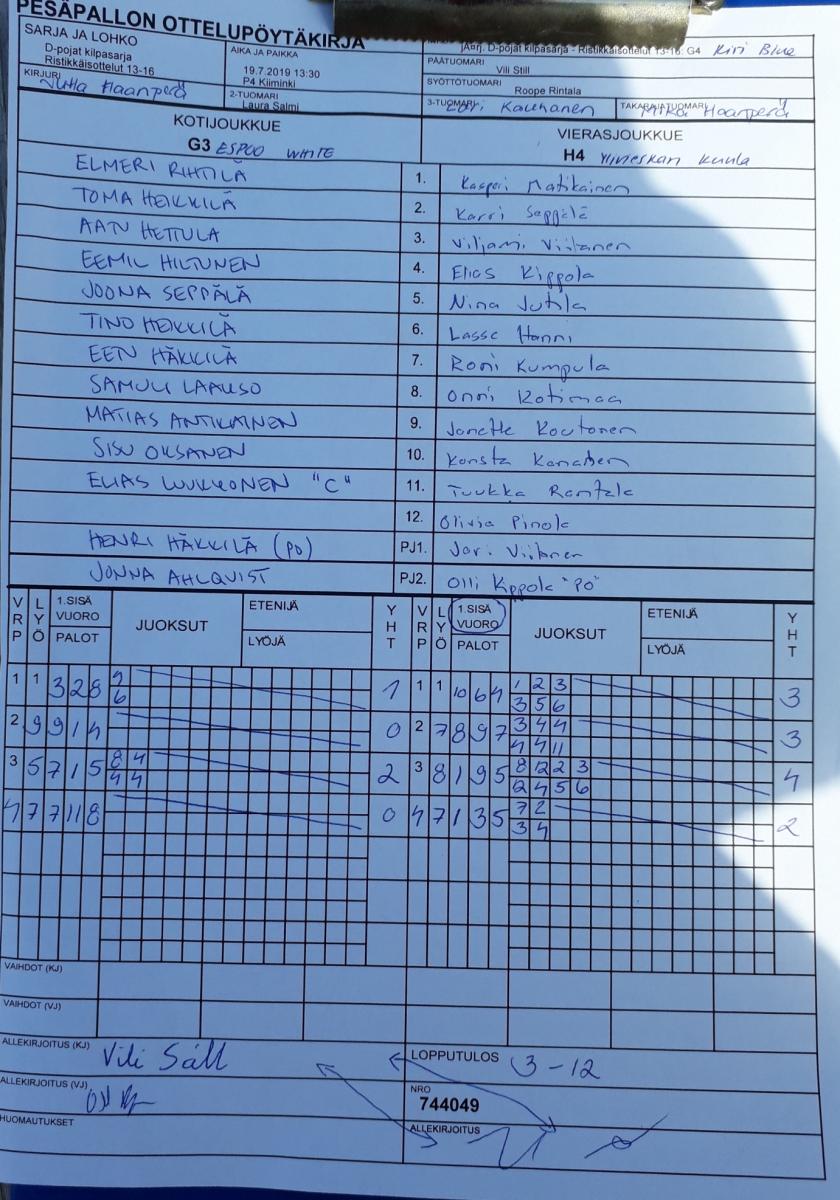 PESÄPALLON OTTELUPÖYTÄKIRJA
SARJA JA LOHKO
D-pojat kilpasarja
Ristikkäisottelut 13-16
AIKA JA PAIKKA
19.7.2019 13:30
P4 Kiiminki
D-pojat kilpasarja - Ristikkäisottelut 13-16: G4 Kiri Blue
PÄÄTUOMARI
Vili Still
SYÖTTÖTUOMARI
Roope Rintala
KIRJURI
Jutta Haanperä
2-TUOMARI
Laura Salmi
3-TUOMARI
Kauhanen
TAKARAJATUOMARI
Mika Haanperä
KOTIJOUKKUE
G3 ESPOO WHITE
VIERASJOUKKUE
H4 Ylivieskan Kuula
ELMERI RIHTILÄ 1. Kasperi Matikainen
TOMA HEIKKILÄ 2. Karri Seppälä
AATU HETTULA 3. Viljami Viitanen
EEMIL HILTUNEN 4. Elias Kippola
JOONA SEPPÄLÄ 5. Nina Jutila
TINO HEIKKILÄ 6. Lasse Hanni
EEN HÄKKILÄ 7. Roni Kumpula
SAMULI LAAKSO 8. Onni Kotimaa
MATIAS ANTIKAINEN 9. Janette Koutonen
SISU OKSANEN 10. Konsta
ELIAS LUKKONEN "C" 11. Tuukka Rantala
12. Olivia Pinola
HENRI HÄKKILÄ (PO) PJ1. Jari Viitanen
JONNA AHLQVIST PJ2. Olli Kippola "PO"
VRP LYÖ 1.SISÄ VUORO PALOT JUOKSUT ETENIJÄ LYÖJÄ YHT VRP LYÖ 1.SISÄ VUORO PALOT JUOKSUT ETENIJÄ LYÖJÄ YHT
1 1 3 2 8 2 1 1 1 10 6 4 1 2 3 3
6 3 5 6
2 9 9 1 4 0 2 7 8 9 7 3 4 4 3
4 4 11
3 5 7 1 5 8 4 2 3 8 1 9 5 8 12 2 3 4
4 4 2 4 5 6
4 7 7 11 8 0 4 7 1 3 5 7 2 2
3 4
VAIHDOT (KJ)
VAIHDOT (VJ)
ALLEKIRJOITUS (KJ) Vili Säll
LOPPUTULOS 3-12
ALLEKIRJOITUS (VJ)
NRO
744049
HUOMAUTUKSET
ALLEKIRJOITUS